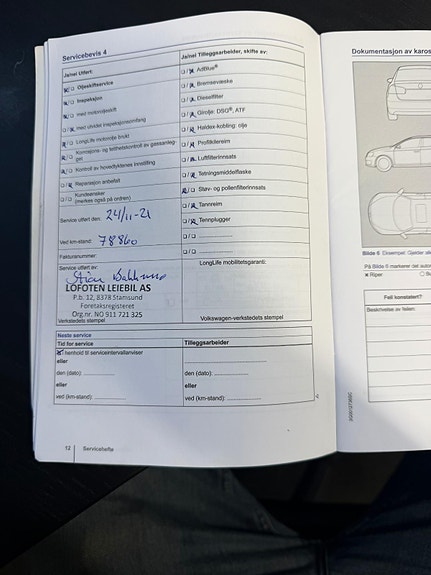 Servicebevis 4
Ja/nei Utført:
Oljeskiftservice
Inspeksjon
med motoroljeskift
med utvidet inspeksjonsomfang
LongLife motorolje brukt
Korrosjons- og tetthetskontroll av gassanlegget
Kontroll av hovedlyktenes innstilling
Reparasjon anbefalt
Kundeønsker
(merkes også på ordren)
Service utført den: 24/11-21
Ved km-stand: 78860
Fakturanummer:
Service utført av:
LOFOTEN LEIEBIL AS
P.b. 12, 8378 Stamsund
Foretaksregisteret
Org.nr. NO 911 721 325
Verkstedets stempel
Ja/nei Tilleggsarbeider, skifte av:
AdBlue®
Bremsevæske
Dieselfilter
Girolje: DSG®, ATF
Haldex-kobling: olje
Profildtreim
Luftfilterinnsats
Tetningsmiddelflaske
Støv- og pollenfilterinnsats
Tannreim
Tennplugger
LongLife mobilitetsgaranti:
Volkswagen-verkstedets stempel
Neste service
Tid for service
Tilleggsarbeider
I henhold til serviceintervallanviser
eller
den (dato):
eller
ved (km-stand):
den (dato):
eller
ved (km-stand):
12 Servicehefte
Dokumentasjon av karos
Bilde 6
På Bilde 6 markerer det
Riper
Feil konstatert?
Beskrivelse av feilen: